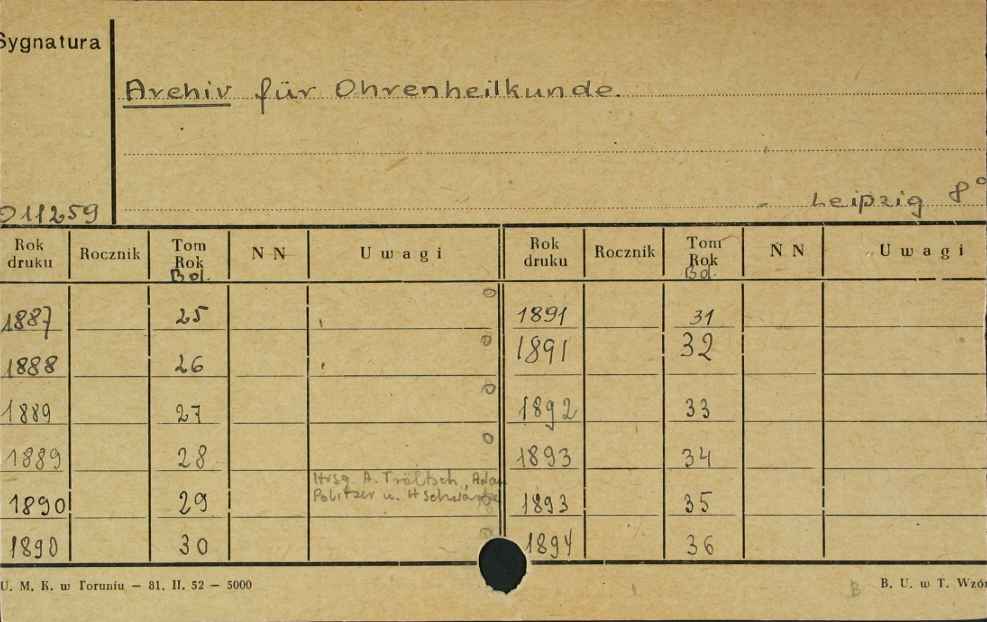 Sygnatura
Archiv für Ohrenheilkunde.
Leipzig 8°
011259
Rok druku Rocznik Tom Rok Bd. NN Uwagi Rok druku Rocznik Tom Rok Bd. NN Uwagi
1887 25 1891 31
1888 26 1891 32
1889 27 1892 33
1889 28 1893 34
Hrsg. A. Tröltsch, Adam
Politzer u. H Schwartze
1890 29 1893 35
1890 30 1894 36
U. M. K. w Toruniu — 81. II. 52 — 5000 B. U. w T. Wzór